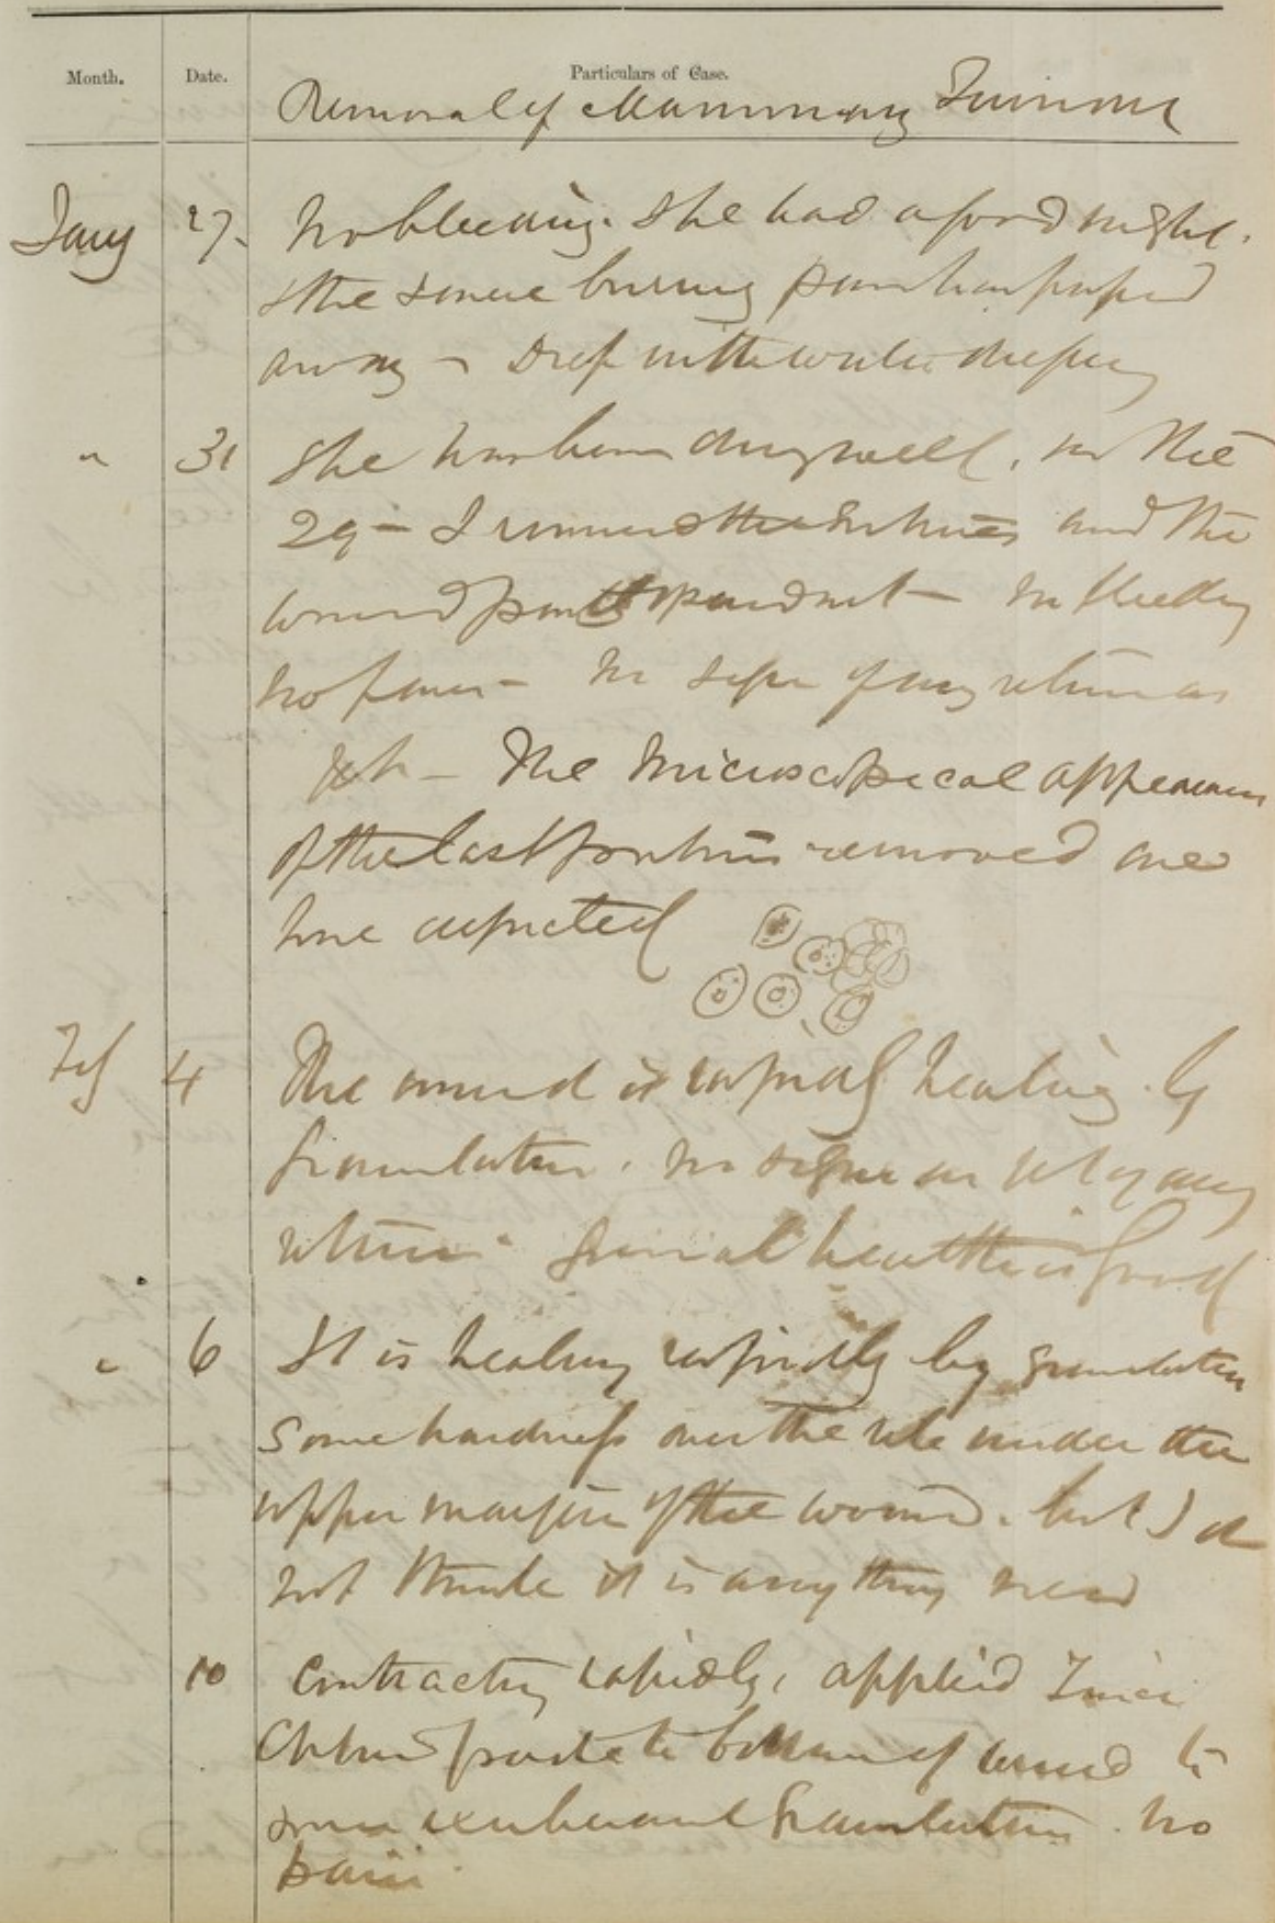 Month. Date. Particulars of Case.
Removal of Mammary Tumour
Jany 27. No bleeding. She had a good night.
the severe burning pain has passed
away - with water dressing
" 31 She has been doing well. on the
29 - I removed the sutures and the
wound partly opened out - no bleeding
no pain - no sign of any return as
yet - The Microscopical appearances
of the last portion removed are
here depicted
Feb 4 The wound is rapidly healing by
Granulation. no sign as yet of any
return. General health is good
" 6 It is healing rapidly by granulation
some hardness over the rib under the
upper margin of the wound. but I do
not think it is anything new
10 Contracting rapidly, applied Zinci
Chlorid paste to bottom of wound to
some exuberant Granulations. No
pain.